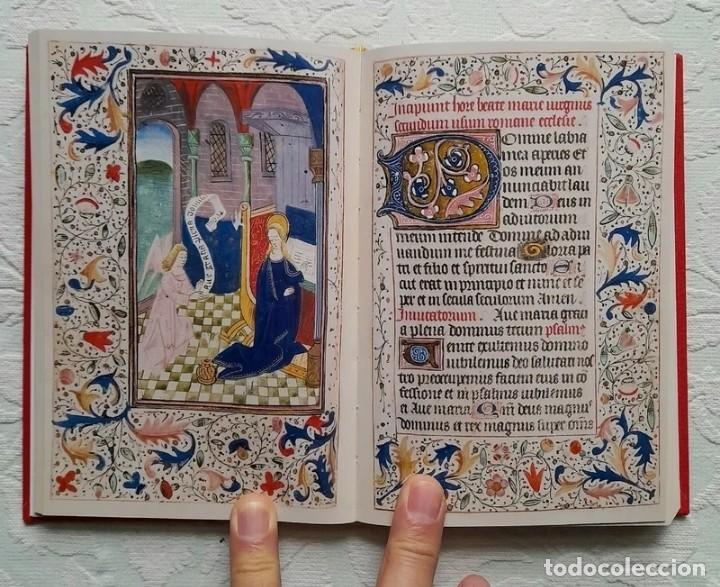 aue gratia plena dominus
Incipiunt hore beate marie uirginis
secundum usum romane ecclesie
Domine labia
mea aperies et
os meum an
nunciabit lau
dem Deus in
adiutorium
meum intende Domine ad adiu
uandum me festina Gloria pa
tri et filio et spiritui sancto Si
cut erat in principio et nunc et se
per et in secula seculorum Amen
Inuitatorium Aue maria graci
a plena dominus tecum psalm
Uenite exultemus domino
iubilemus deo salutari no
stro preocupemus faciem eius in co
fessione et in psalmis iubilemus
ei Aue maria Qm deus magnus
dominus et rex magnus super oms
todocoleccion